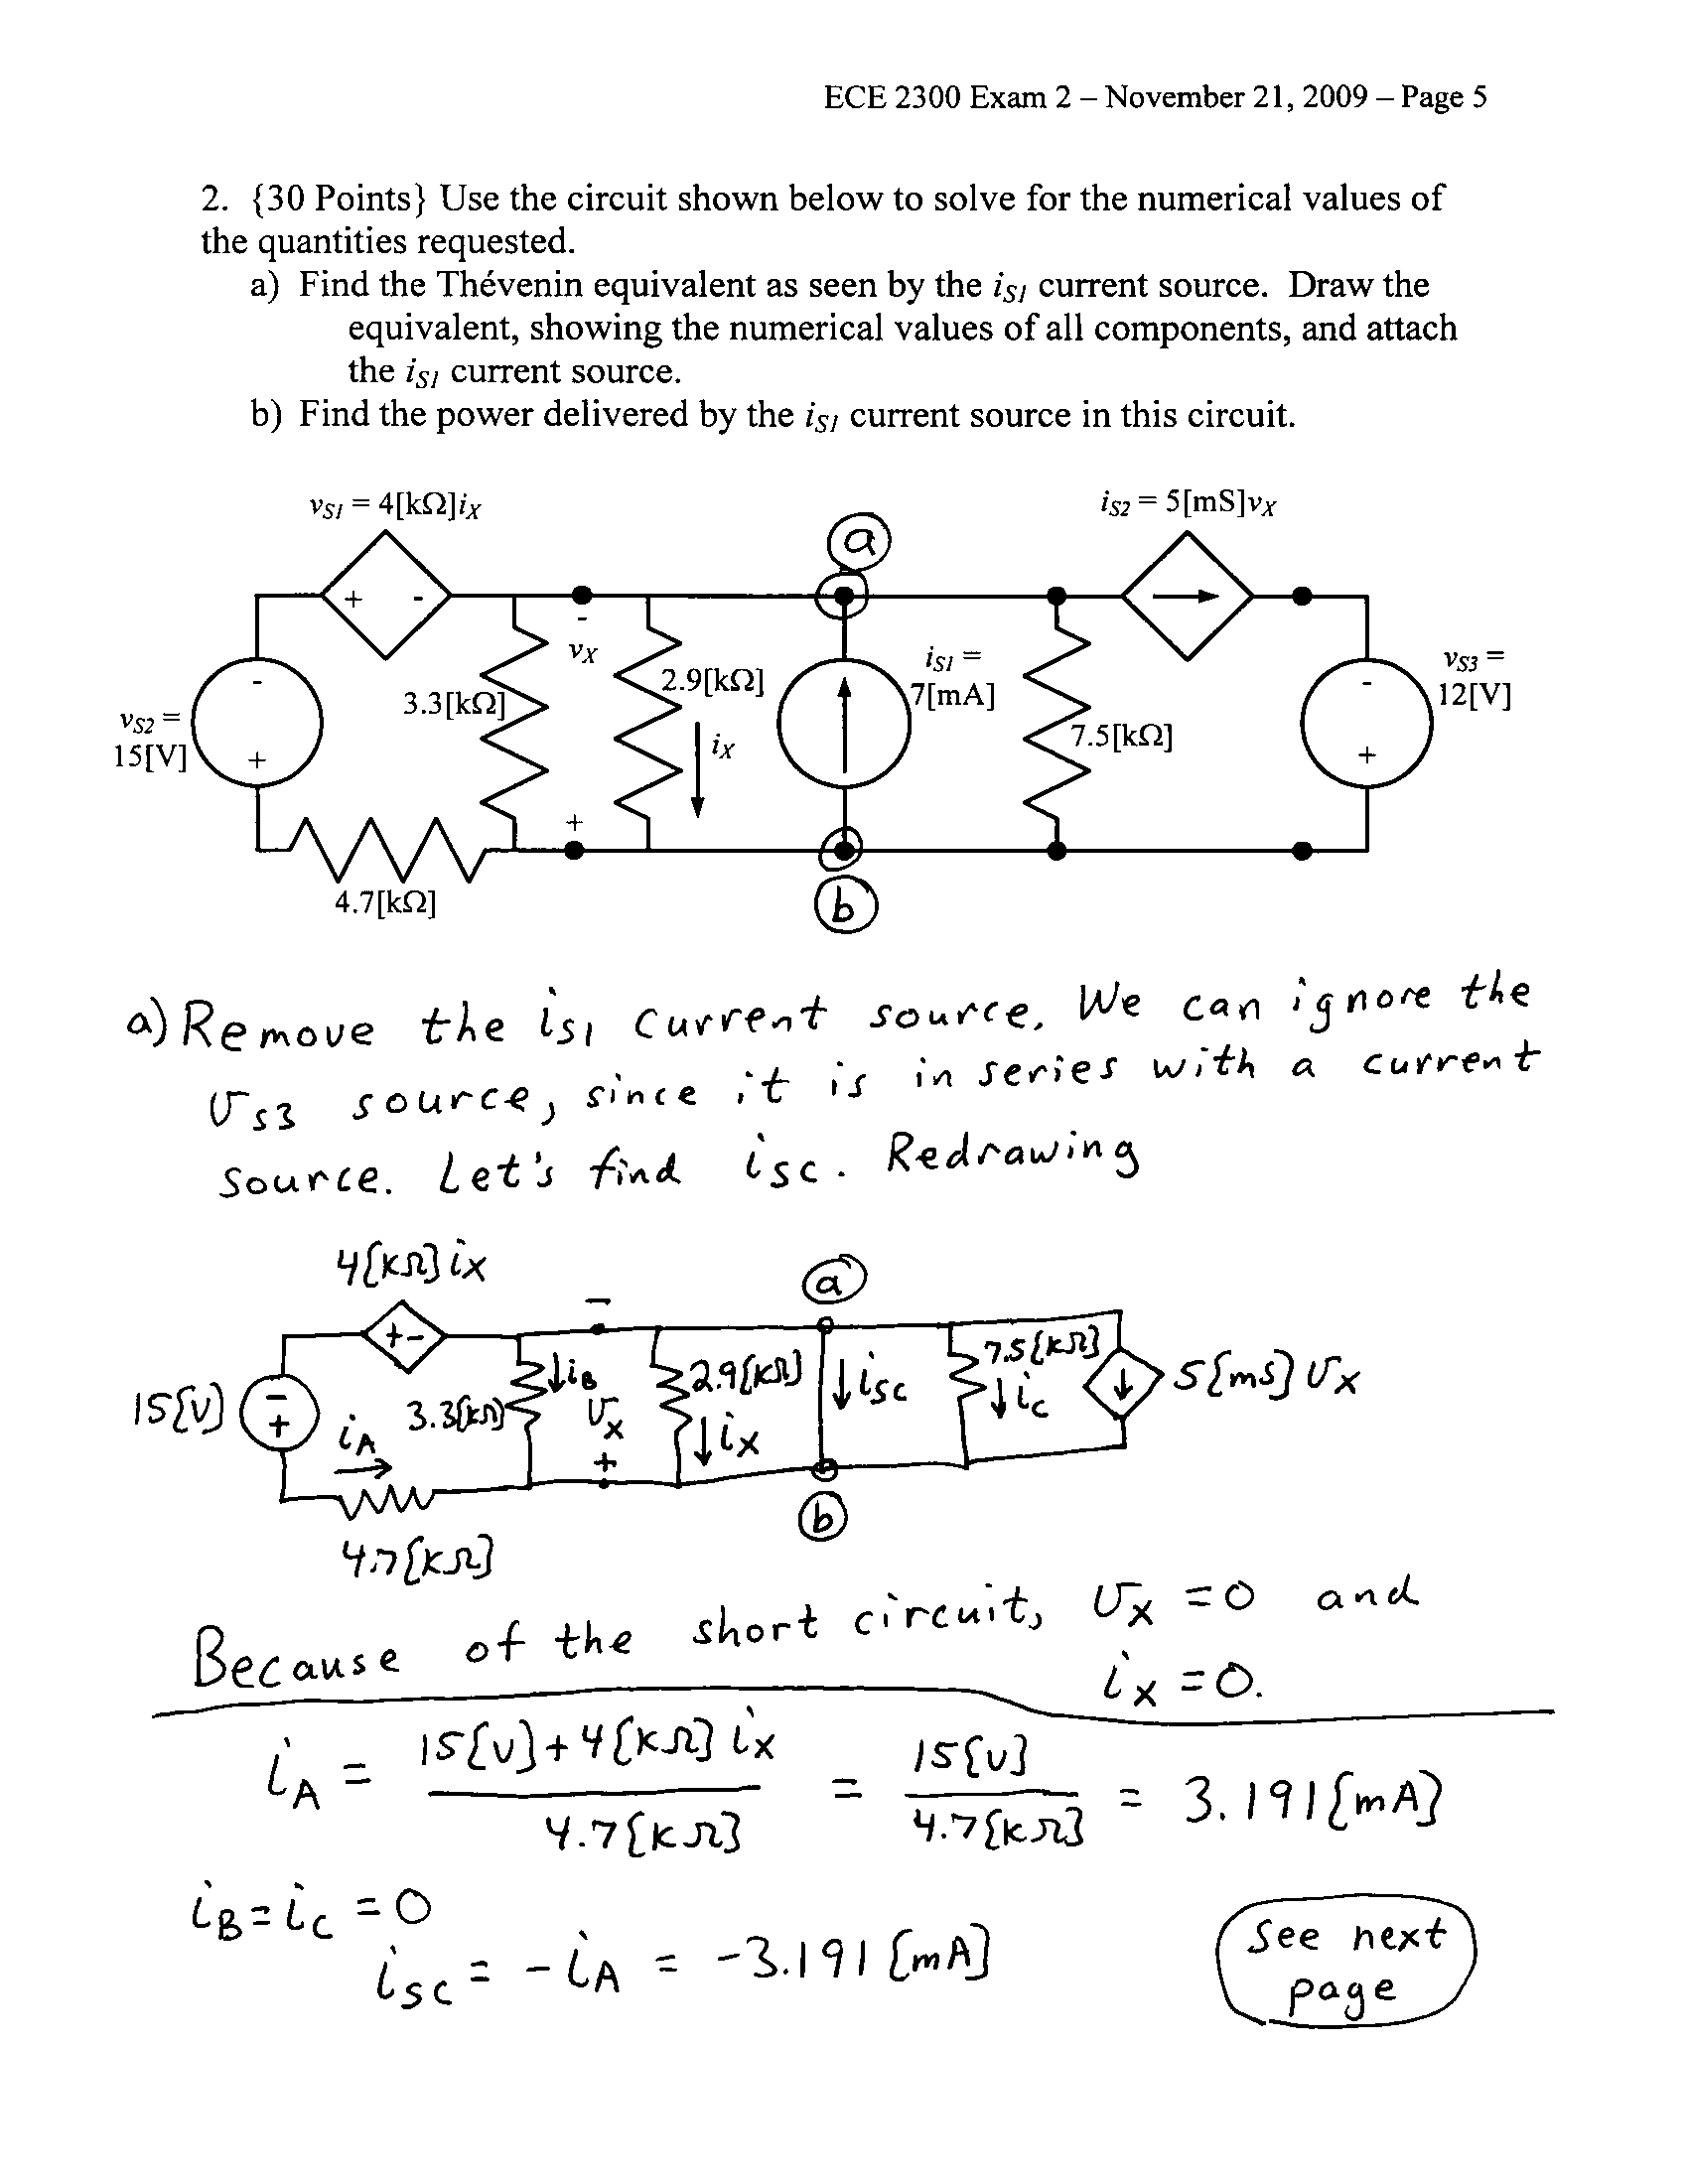 ECE 2300 Exam 2 – November 21, 2009 – Page 5
2. {30 Points} Use the circuit shown below to solve for the numerical values of
the quantities requested.
a) Find the Thévenin equivalent as seen by the iS1 current source. Draw the
equivalent, showing the numerical values of all components, and attach
the iS1 current source.
b) Find the power delivered by the iS1 current source in this circuit.
vS1 = 4[kΩ]iX
iS2 = 5[mS]vX
a
+ -
-
vX
+
3.3[kΩ]
2.9[kΩ]
iX
iS1 =
7[mA]
7.5[kΩ]
vS3 =
12[V]
-
+
vS2 =
15[V]
-
+
4.7[kΩ]
b
a) Remove the iS1 current source. We can ignore the
vS3 source, since it is in series with a current
source. Let's find iSC. Redrawing
4[kΩ]iX
a
+ -
-
15[V]
-
+
iA
3.3[kΩ]
iB
vX
+
2.9[kΩ]
iX
iSC
7.5[kΩ]
iC
5[mS]vX
b
4.7[kΩ]
Because of the short circuit, vX = 0 and
iX = 0.
iA = 15[V] + 4[kΩ] iX / 4.7[kΩ] = 15[V] / 4.7[kΩ] = 3.191[mA]
iB = iC = 0
iSC = -iA = -3.191[mA]
See next
page